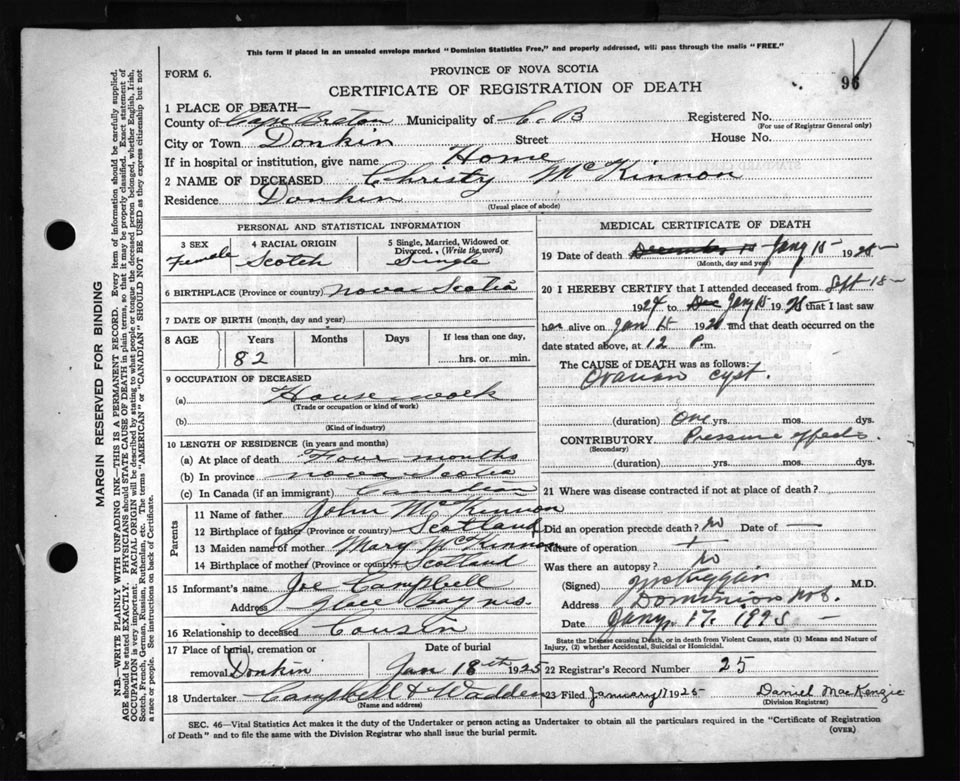 This form if placed in an unsealed envelope marked "Dominion Statistics Free," and properly addressed, will pass through the mails "FREE."
FORM 6.
PROVINCE OF NOVA SCOTIA
96
CERTIFICATE OF REGISTRATION OF DEATH
MARGIN RESERVED FOR BINDING
N.B.—WRITE PLAINLY WITH UNFADING INK—THIS IS A PERMANENT RECORD. Every item of information should be carefully supplied.
AGE should be stated EXACTLY. PHYSICIANS should STATE CAUSE OF DEATH in plain terms, so that it may be properly classified. Exact statement of
OCCUPATION is very important. RACIAL ORIGIN will be described by stating to what people or tongue the deceased person belonged, whether English, Irish,
Scotch, French, German, Russian, Ruthenian, etc. The terms "AMERICAN" or "CANADIAN" SHOULD NOT BE USED as they express citizenship but not
a race or people. See instructions on back of Certificate.
1 PLACE OF DEATH—
County of Cape Breton Municipality of C. B Registered No.
(For use of Registrar General only)
City or Town Donkin Street House No.
If in hospital or institution, give name Home
2 NAME OF DECEASED Christy McKinnon
Residence Donkin
(Usual place of abode)
PERSONAL AND STATISTICAL INFORMATION
3 SEX Female
4 RACIAL ORIGIN Scotch
5 Single, Married, Widowed or Divorced. (Write the word) Single
6 BIRTHPLACE (Province or country) Nova Scotia
7 DATE OF BIRTH (month, day and year)
8 AGE Years Months Days If less than one day,
82 hrs. or min.
9 OCCUPATION OF DECEASED
(a) House work
(Trade or occupation or kind of work)
(b)
(Kind of industry)
10 LENGTH OF RESIDENCE (in years and months)
(a) At place of death Four months
(b) In province Nova Scotia
(c) In Canada (if an immigrant) Canadian
Parents
11 Name of father John McKinnon
12 Birthplace of father (Province or country) Scotland
13 Maiden name of mother Mary McKinnon
14 Birthplace of mother (Province or country) Scotland
15 Informant's name Joe Campbell
Address Glace Bay N.S.
16 Relationship to deceased Cousin
17 Place of burial, cremation or Date of burial
removal Donkin Jan 18th 1925
18 Undertaker Campbell & Wadden
(Name and address)
MEDICAL CERTIFICATE OF DEATH
19 Date of death December 15 Jany 15 1925
(Month, day and year)
20 I HEREBY CERTIFY that I attended deceased from Sept 15
1924 to Dec Jany 15 1925 that I last saw
her alive on Jan 15 1925 and that death occurred on
date stated above, at 12 P.m.
The CAUSE of DEATH was as follows:
Ovarian cyst.
(duration) One yrs. mos. dys.
CONTRIBUTORY Pressure effects.
(Secondary)
(duration) yrs. mos. dys.
21 Where was disease contracted if not at place of death?
Did an operation precede death? No Date of —
Nature of operation
Was there an autopsy? No
(Signed) M.D.
Address Dominion No 6.
Date Jany 17. 1925
State the Disease causing Death, or in death from Violent Causes, state (1) Means and Nature of
Injury, (2) whether Accidental, Suicidal or Homicidal.
22 Registrar's Record Number 25
23 Filed January 17 1925 Daniel MacKenzie
(Division Registrar)
SEC. 46—Vital Statistics Act makes it the duty of the Undertaker or person acting as Undertaker to obtain all the particulars required in the "Certificate of Registration
of Death" and to file the same with the Division Registrar who shall issue the burial permit.
(OVER)